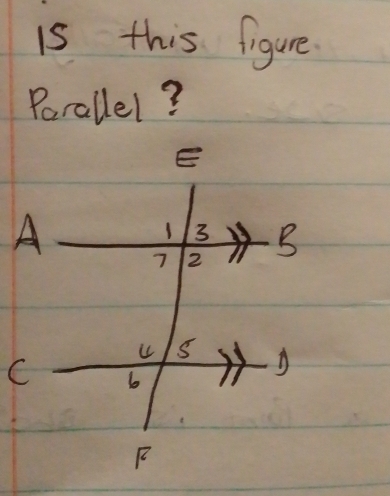 is this figure.
Parallel ?
E
A 1 3 B
7 2
C 4 5 D
6
F